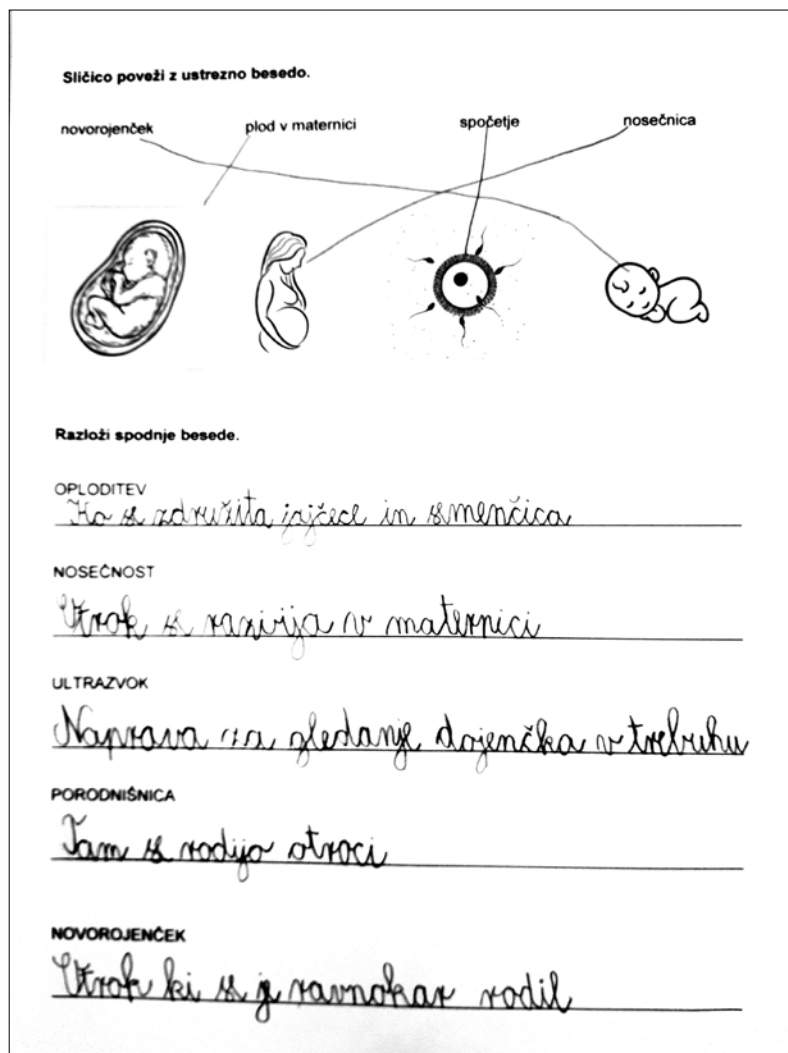 Sličico poveži z ustrezno besedo.
novorojenček plod v maternici spočetje nosečnica
Razloži spodnje besede.
OPLODITEV
Ko se združita jajčece in semenčica
NOSEČNOST
Otrok se razvija v maternici
ULTRAZVOK
Naprava za gledanje dojenčka v trebuhu
PORODNIŠNICA
Tam se rodijo otroci
NOVOROJENČEK
Otrok ki se je ravnokar rodil